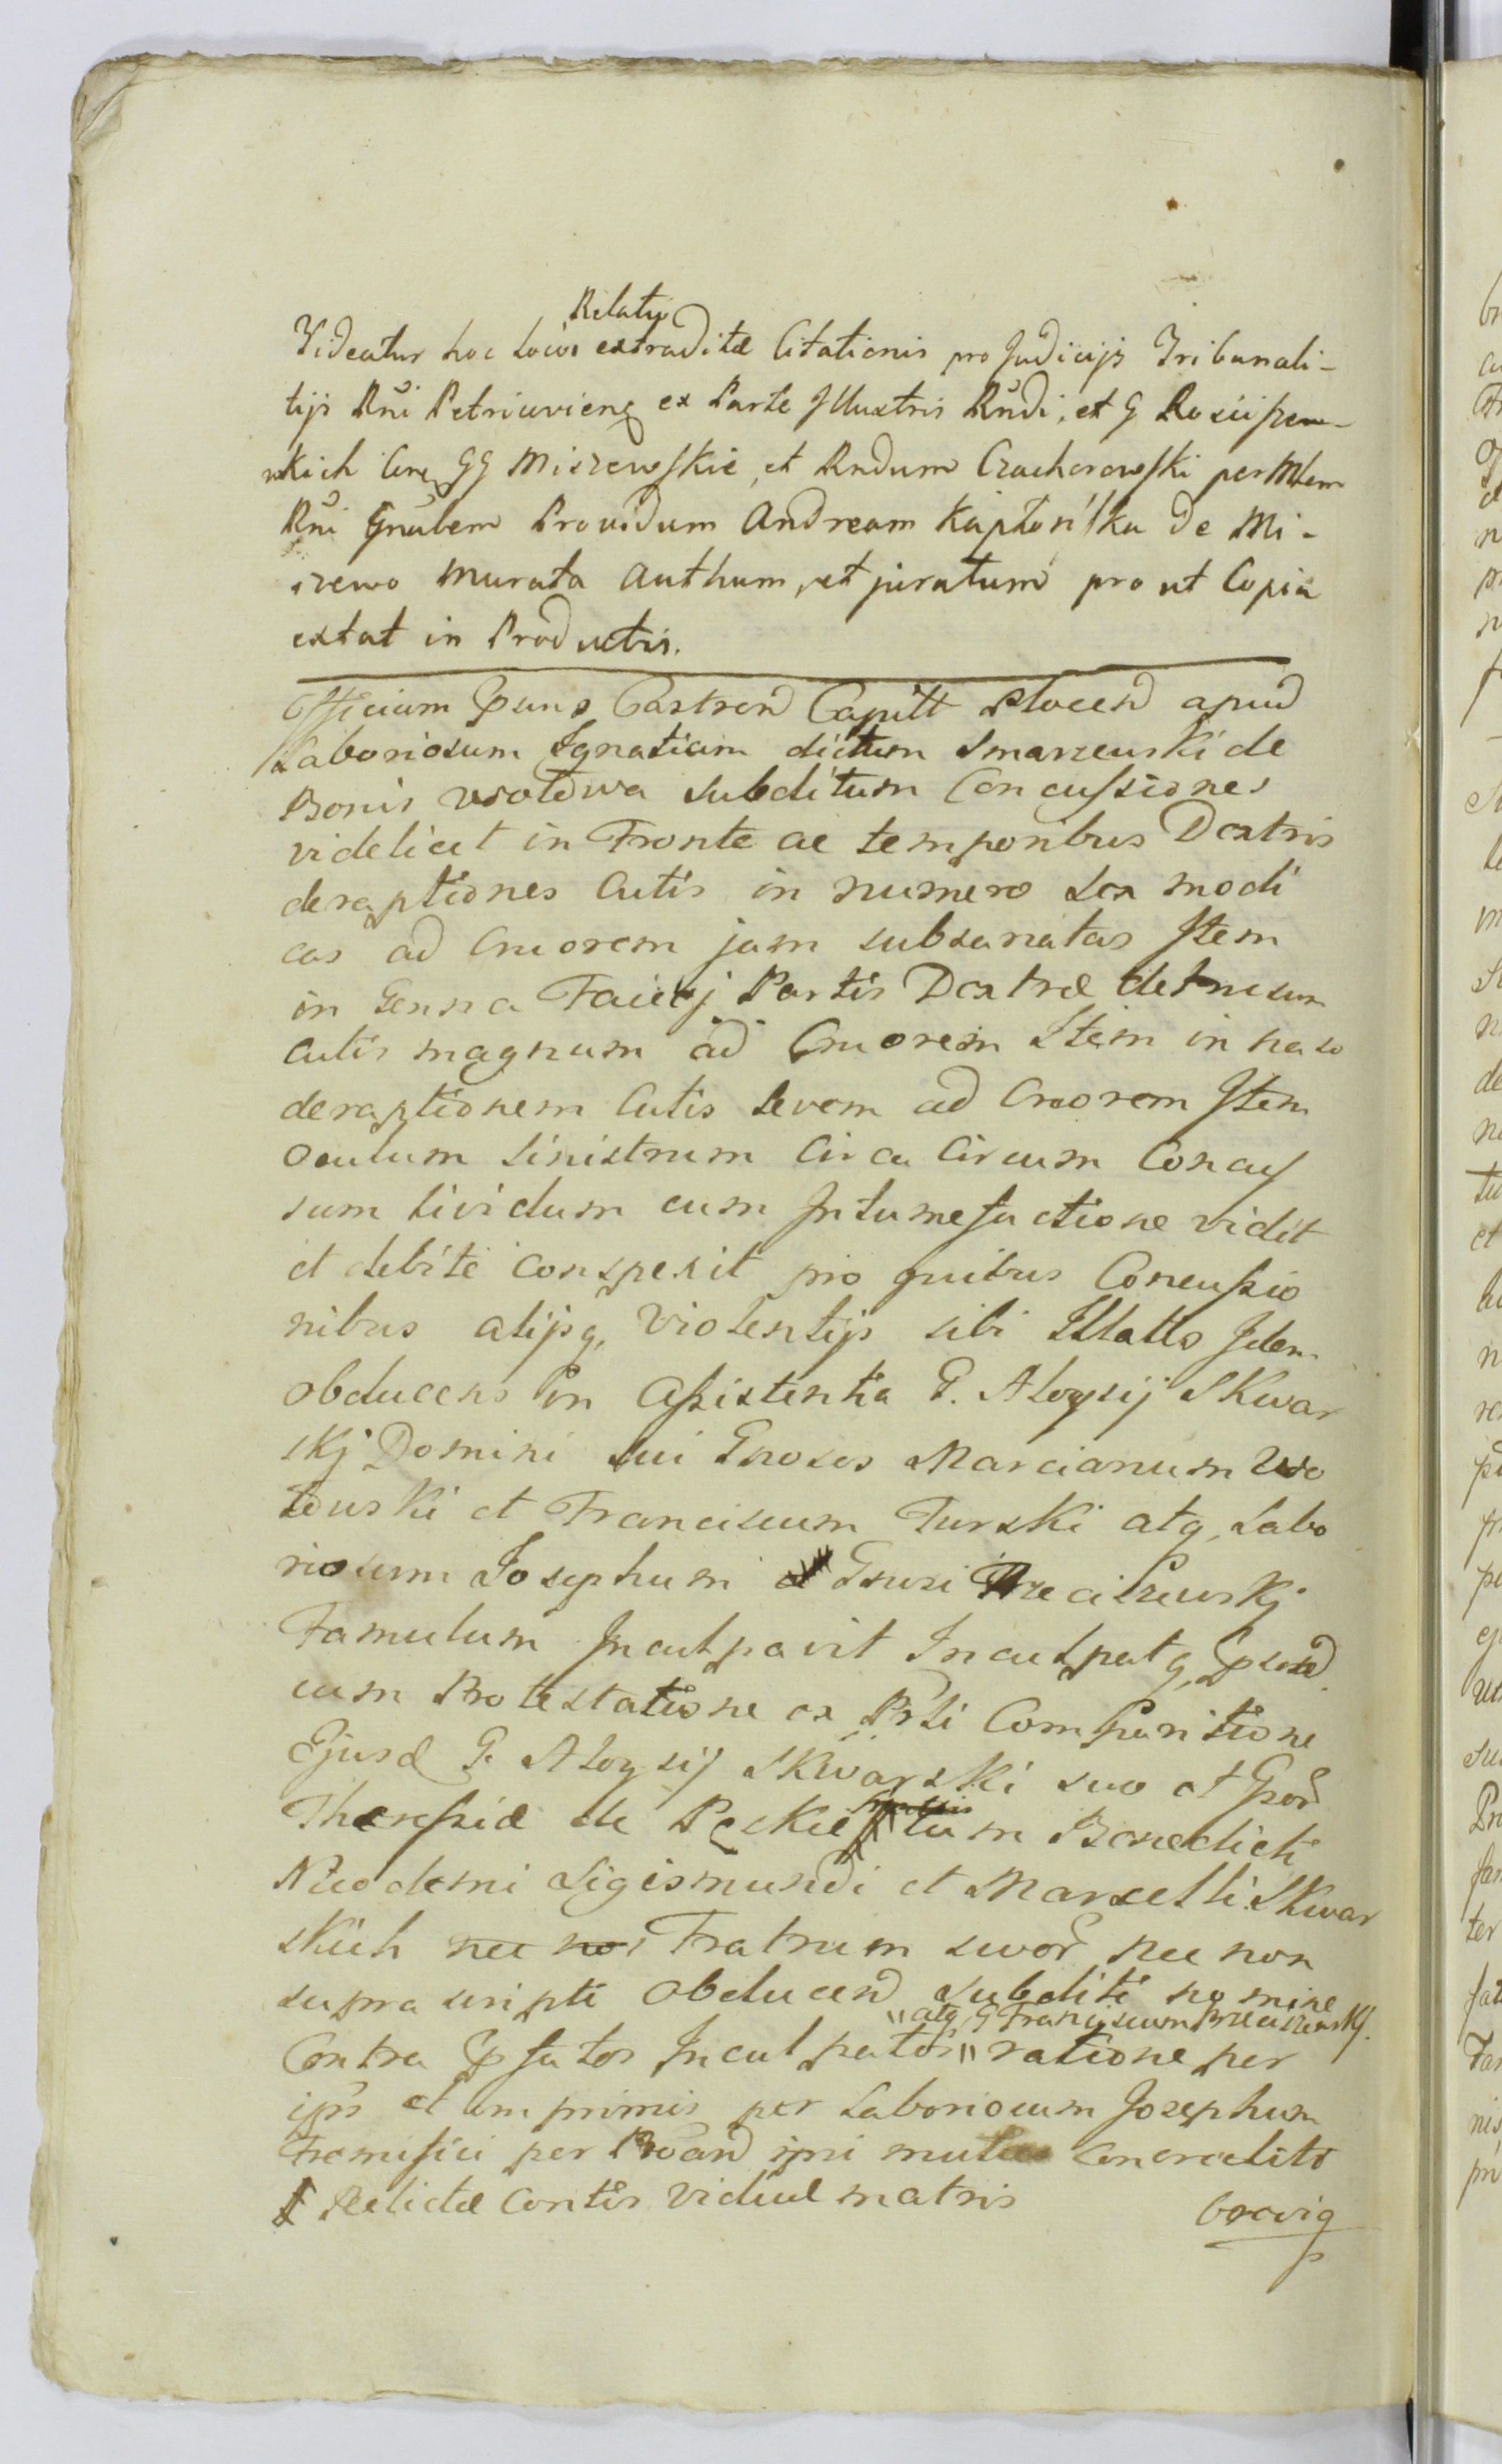 Relatio
Videatur hoc loco extraditæ Citationis pro Judicijs Tribunali-
tijs Rñi Petricovien ex Parte Illustris Rñdi, et G Rosciszew-
skich Cre GG Miszewskie, et Rndum Czachorowski per Mlem
Rñi Gñalem Providum Andream Kaptoński de Mi-
szewo Murata Authum, et juratum pro ut Copia
extat in Productis.
Officium Psens Castren Capitt Plocen apud
Laboriosum Ignatium dictum Smarzewski de
Bonis Wotowa subditum Concussiones
videlicet in Fronte ac temporibus Dextris
deraptiones Cutis in numero sex modi
cas ad Cruorem jam subsanatas Item
in Genna Faciej Partis Dextræ detrusum
Cutis magnum ad Cruorem Item in naso
deraptionem Cutis levem ad Cruorem Item
Oculum sinistrum Circa Circum Concus
sum lividum cum Intumefactione vidit
et debite conspexit pro quibus Concussio
nibus alijsq, Violentijs sibi Illatis Idem
obducens in Assistentia G. Aloysij Skwar
skj Domini sui Gnosos Marcianum Wo
towski et Franciscum Turski atq, Labo
riosum Josephum Gnosi Przeciszewskj
Famulum Inculpavit Inculpatq, Psend
cum Protestatione ex Prsti Comparitione
Ejusd G. Aloysij Skwarski suo et Gsor
Theressiæ de Peskie tum Benedicti
Nicodemi Sigismundi et Marcelli Skwar
skich nec non Fratrum suor nec non
supra scripti Obducen subditi nomine
"atq G Franciscum Przeciszewskj.
Contra Psfatos Inculpatos" ratione per
ips et imprimis per Laboriosum Josephum
Fremissi per Proan ipsi mulæ Concreditæ
Relictæ Contis Viduæ matris
brevig